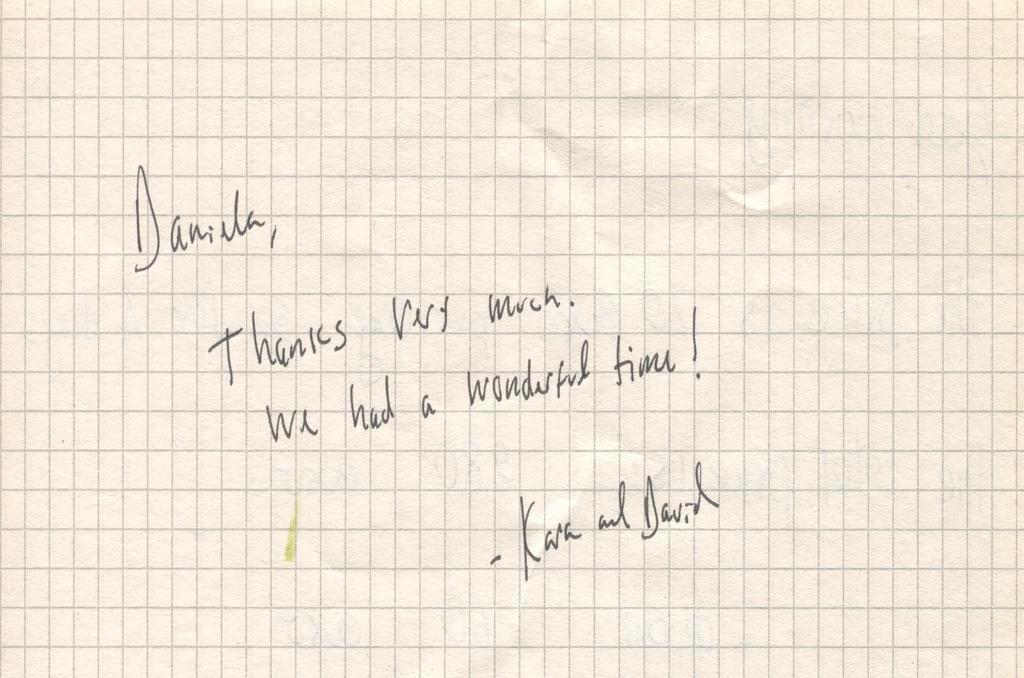 Daniela,
Thanks very much.
We had a wonderful time!
- Kara and David